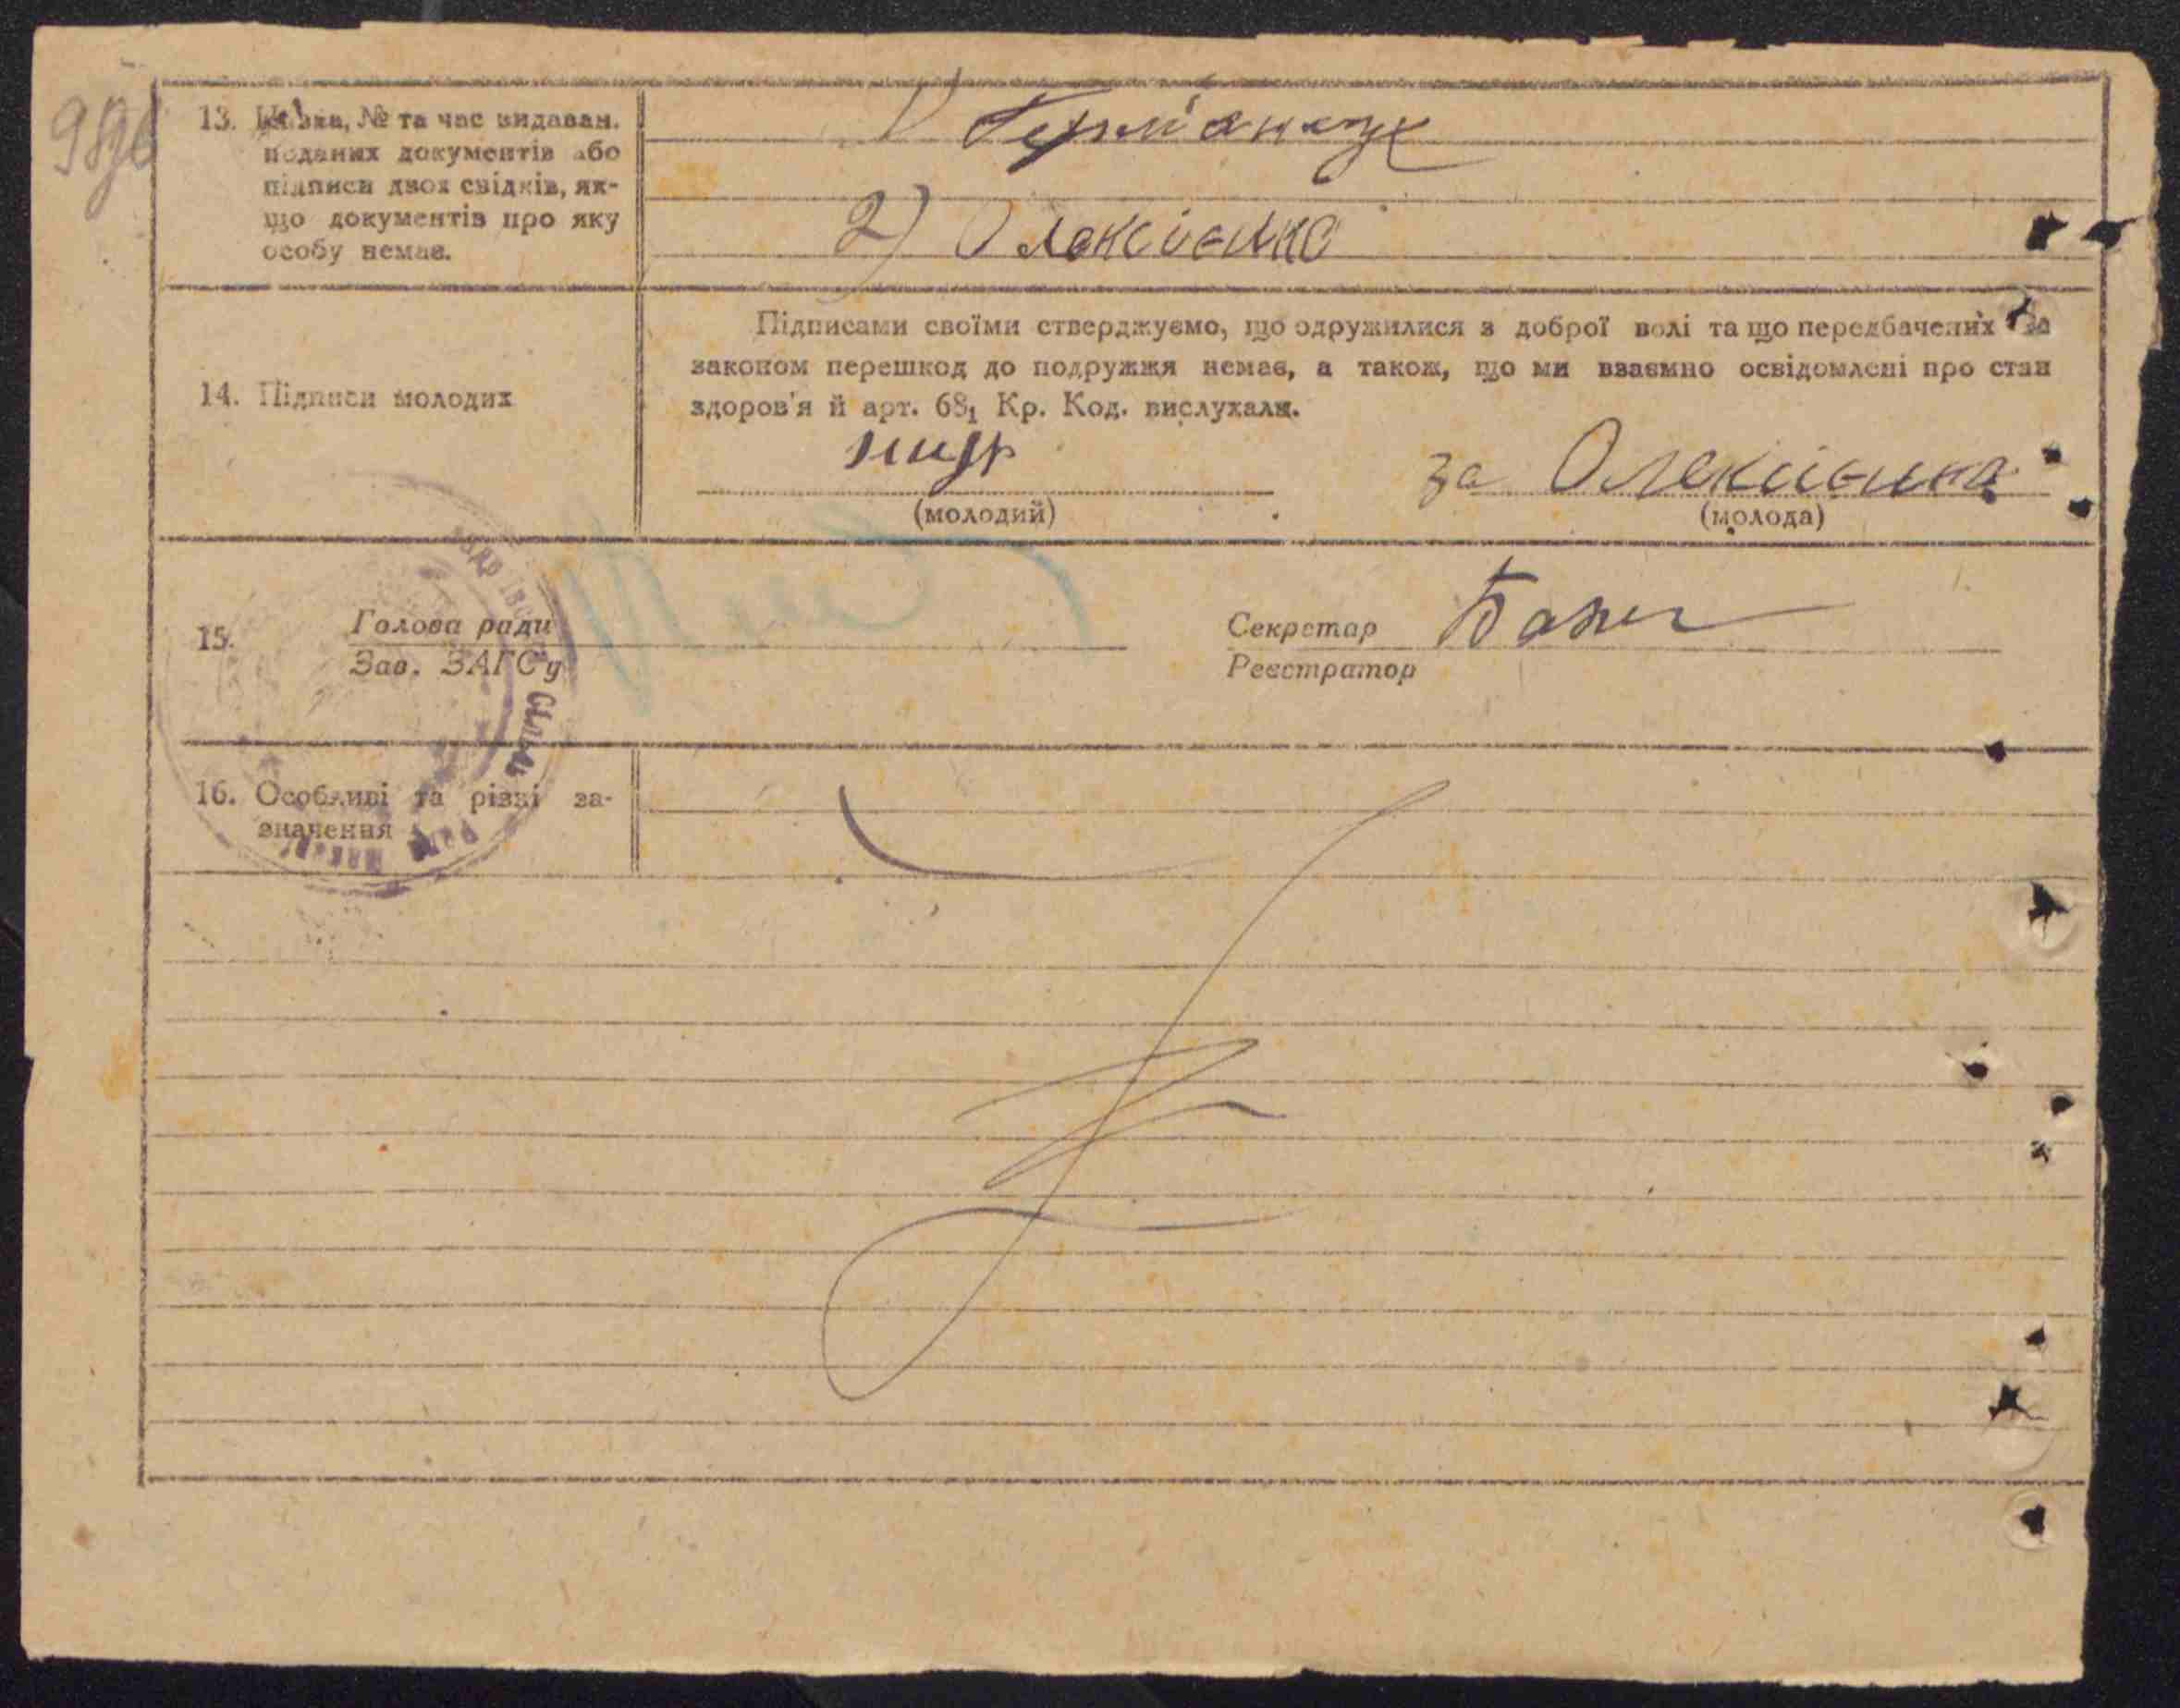 13. Назва, № та час видаван.
поданих документів або
підписи двох свідків, як-
що документів про яку
особу немає.
2) Олексієнко
14. Підписи молодих
Підписами своїми стверджуємо, що одружилися з доброї волі та що передбачених за
законом перешкод до подружжя немає, а також, що ми взаємно освідомлені про стан
здоров'я й арт. 68₁ Кр. Код. вислухали.
(молодий)
за Олексієнко
(молода)
15. Голова ради
Зав. ЗАГС'у
Секретар
Реєстратор
16. Особливі та різні за-
значення